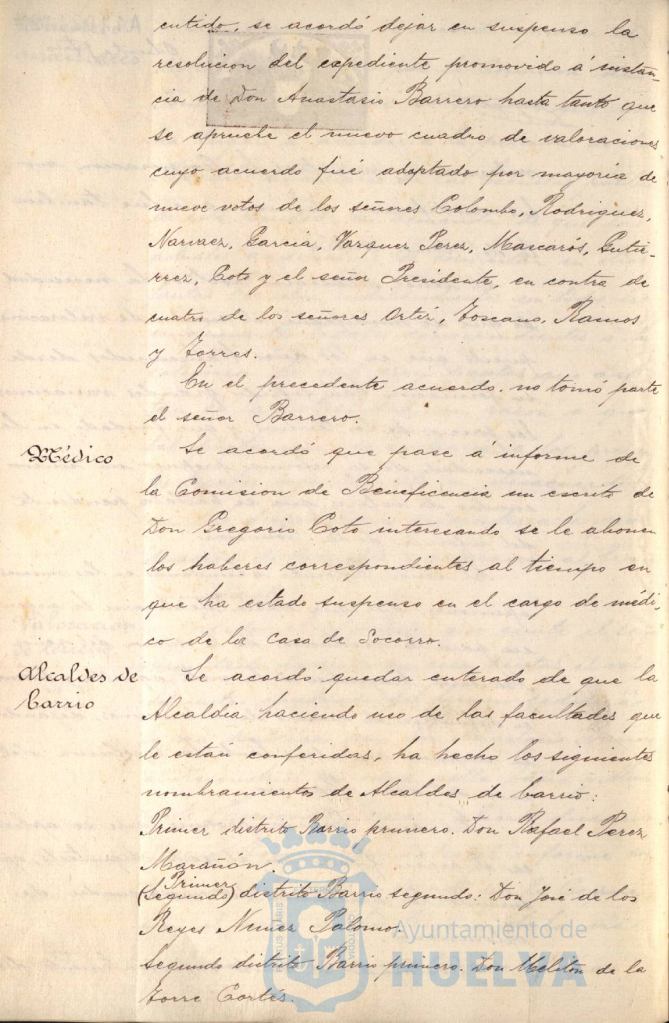 cutido, se acordó dejar en suspenso la
resolucion del expediente promovido á instan-
cia de Don Anastasio Barrero hasta tanto que
se apruebe el nuevo cuadro de valoraciones
cuyo acuerdo fué adoptado por mayoría de
nueve votos de los señores Colombo, Rodriguez,
Narvaez, Garcia, Vazquez Perez, Mascarós, Gutie-
rrez, Coto y el señor Presidente, en contra de
cuatro de los señores Ortiz, Toscano, Ramos
y Torres.
En el precedente acuerdo no tomó parte
el señor Barrero.
Médico
Se acordó que pase á informe de
la Comision de Beneficencia un escrito de
Don Gregorio Coto interesando se le abonen
los haberes correspondientes al tiempo en
que ha estado suspenso en el cargo de médi-
co de la Casa de Socorro.
Alcaldes de
barrio
Se acordó quedar enterado de que la
Alcaldia haciendo uso de las facultades que
le están conferidas, ha hecho los siguientes
nombramientos de Alcaldes de barrio:
Primer distrito Barrio primero. Don Rafael Perez
Marañón.
Primer
(Segundo) distrito Barrio segundo: Don José de los
Reyes Nuñez Palomo.
Segundo distrito Barrio primero. Don Meliton de la
Torre Cortés.
Ayuntamiento de
HUELVA